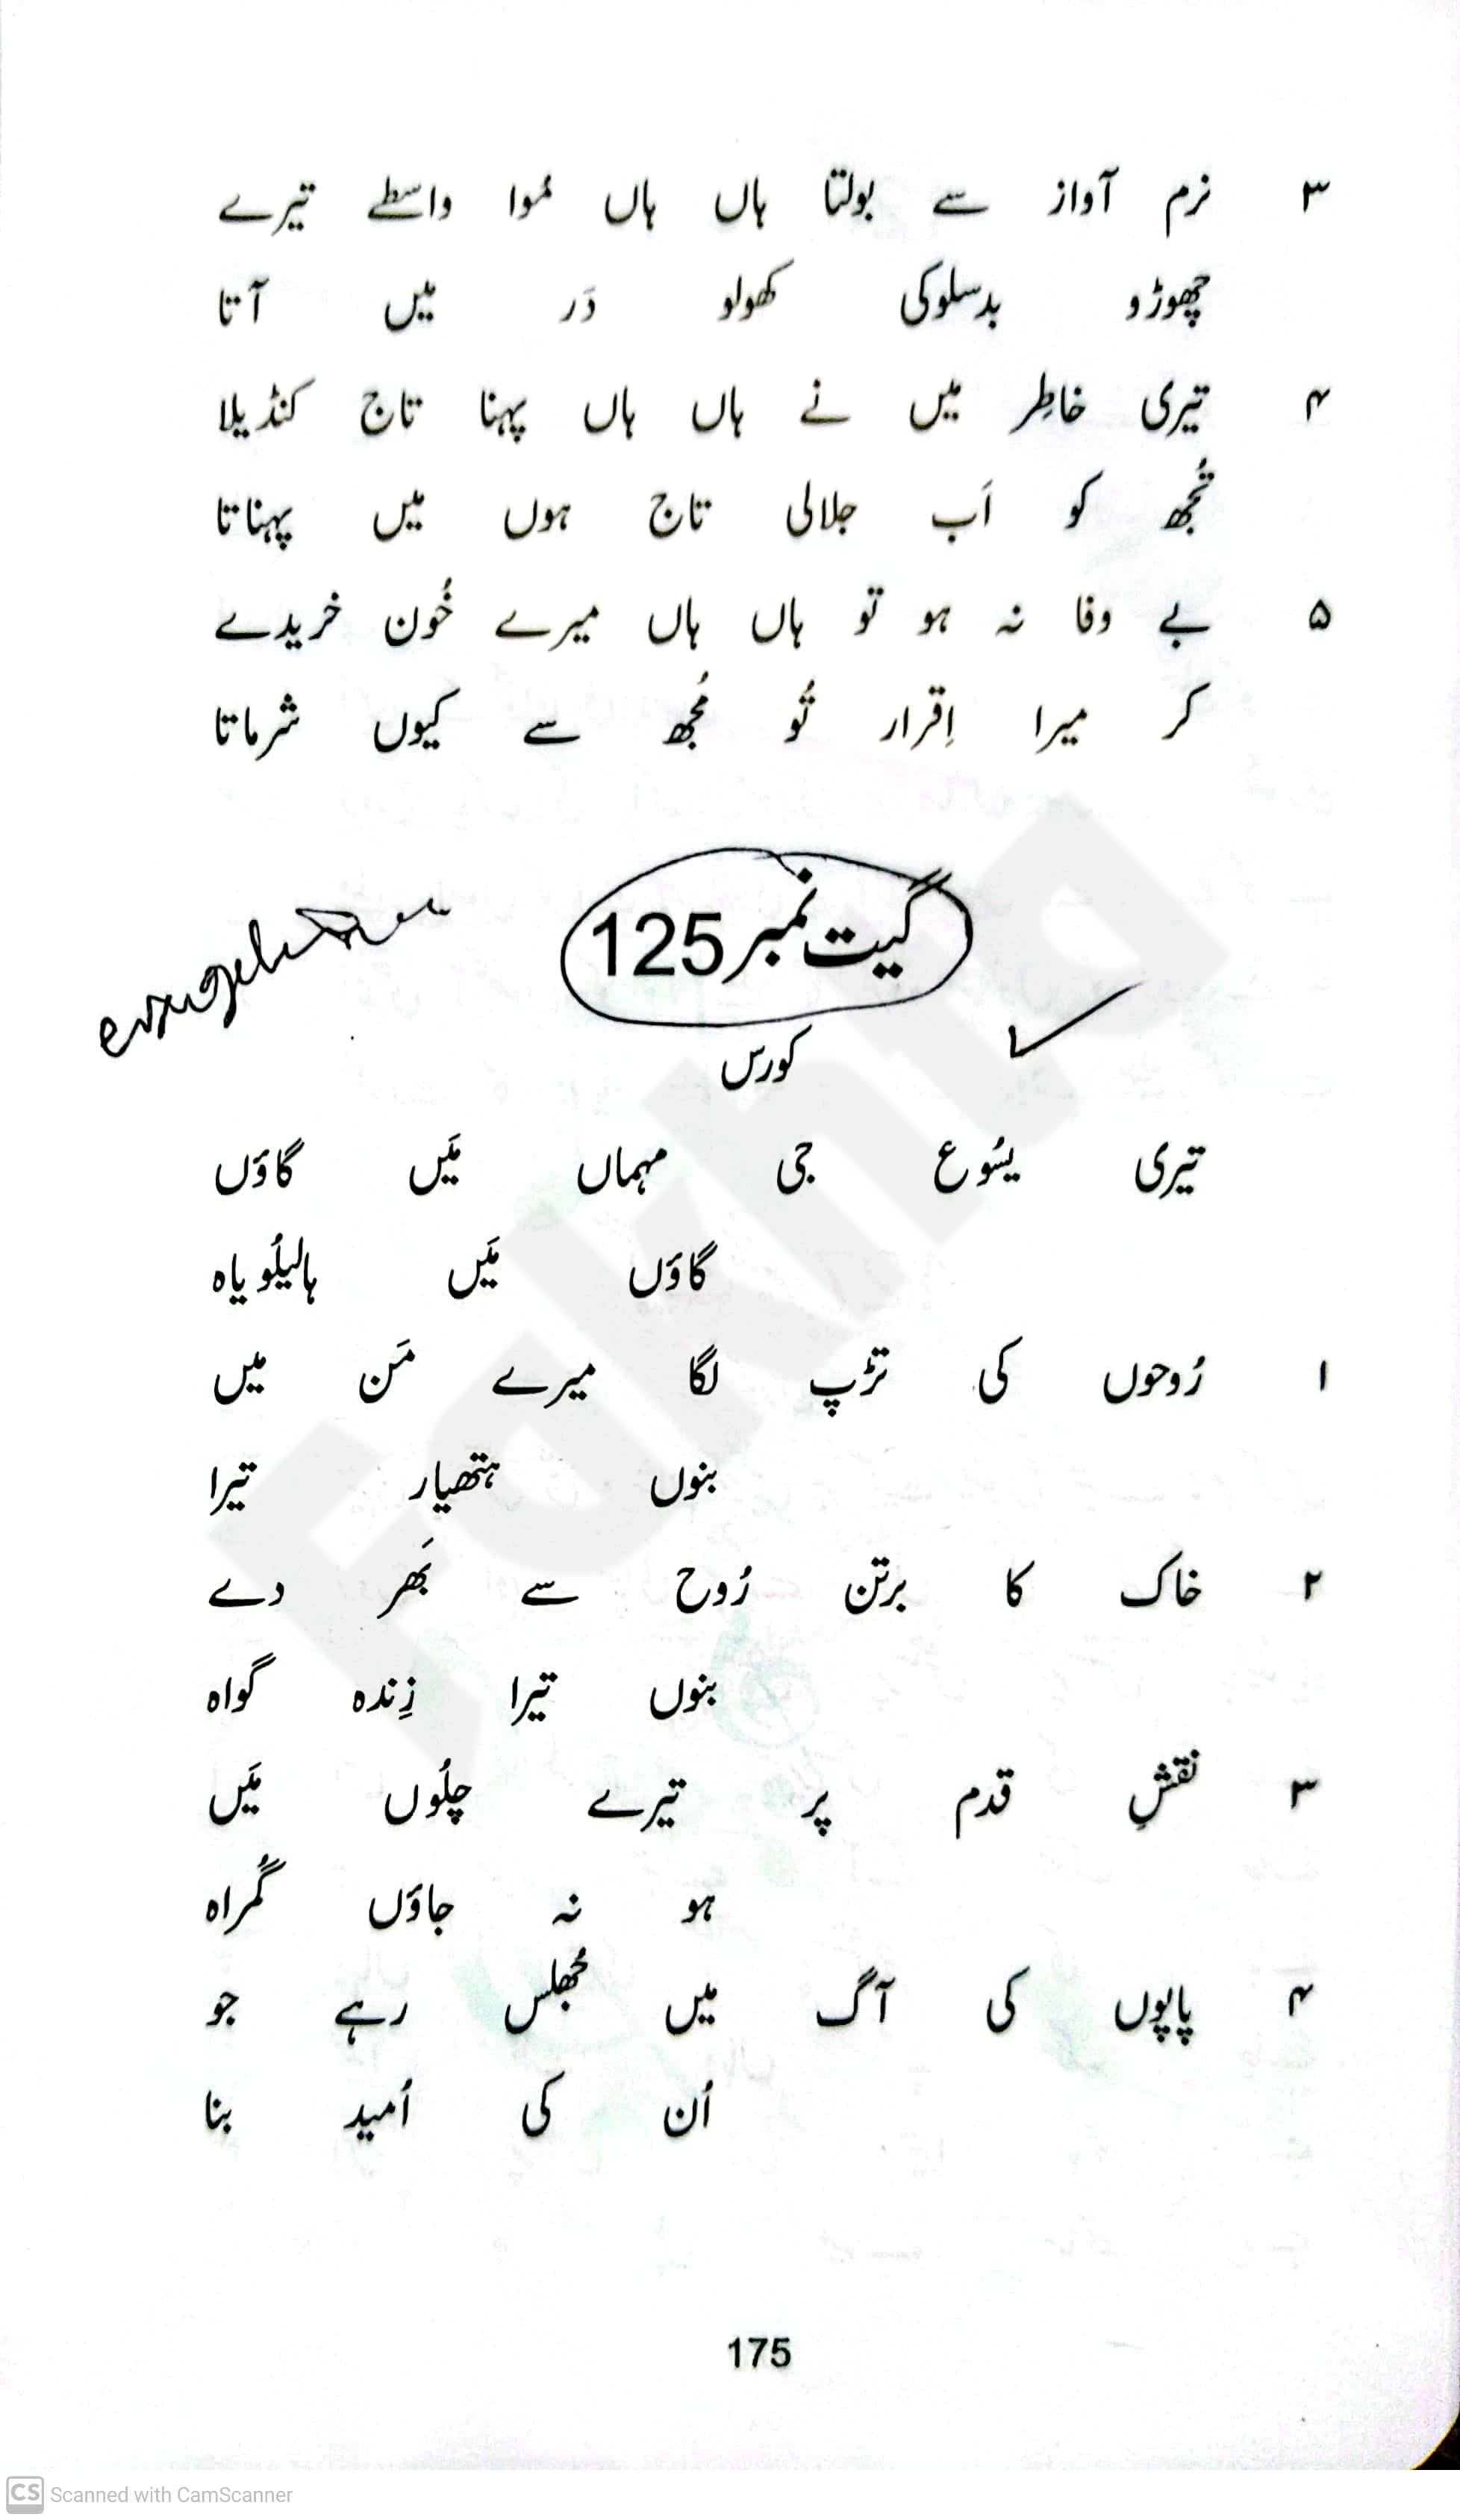 ۳ نرم آواز سے بولتا ہاں ہاں مُوا واسطے تیرے
چھوڑو بدسلوکی کھولو دَر میں آتا
۴ تیری خاطِر میں نے ہاں ہاں پہنا تاج کنڈیلا
تُجھ کو اَب جلالی تاج ہوں میں پہناتا
۵ بے وفا نہ ہو تو ہاں ہاں میرے خُون خریدے
کر میرا اِقرار تُو مُجھ سے کیوں شرماتا
گیت نمبر 125
کورس
تیری یسُوع جی مہماں مَیں گاؤں
گاؤں مَیں ہالیلُویاہ
۱ رُوحوں کی تڑپ لگا میرے مَن میں
بنوں ہتھیار تیرا
۲ خاک کا برتن رُوح سے بَھر دے
بنوں تیرا زِندہ گواہ
۳ نقشِ قدم پر تیرے چلُوں مَیں
ہو نہ جاؤں گُمراہ
۴ پاپوں کی آگ میں جُھلس رہے جو
اُن کی اُمید بنا
175
Fakhta
CS Scanned with CamScanner